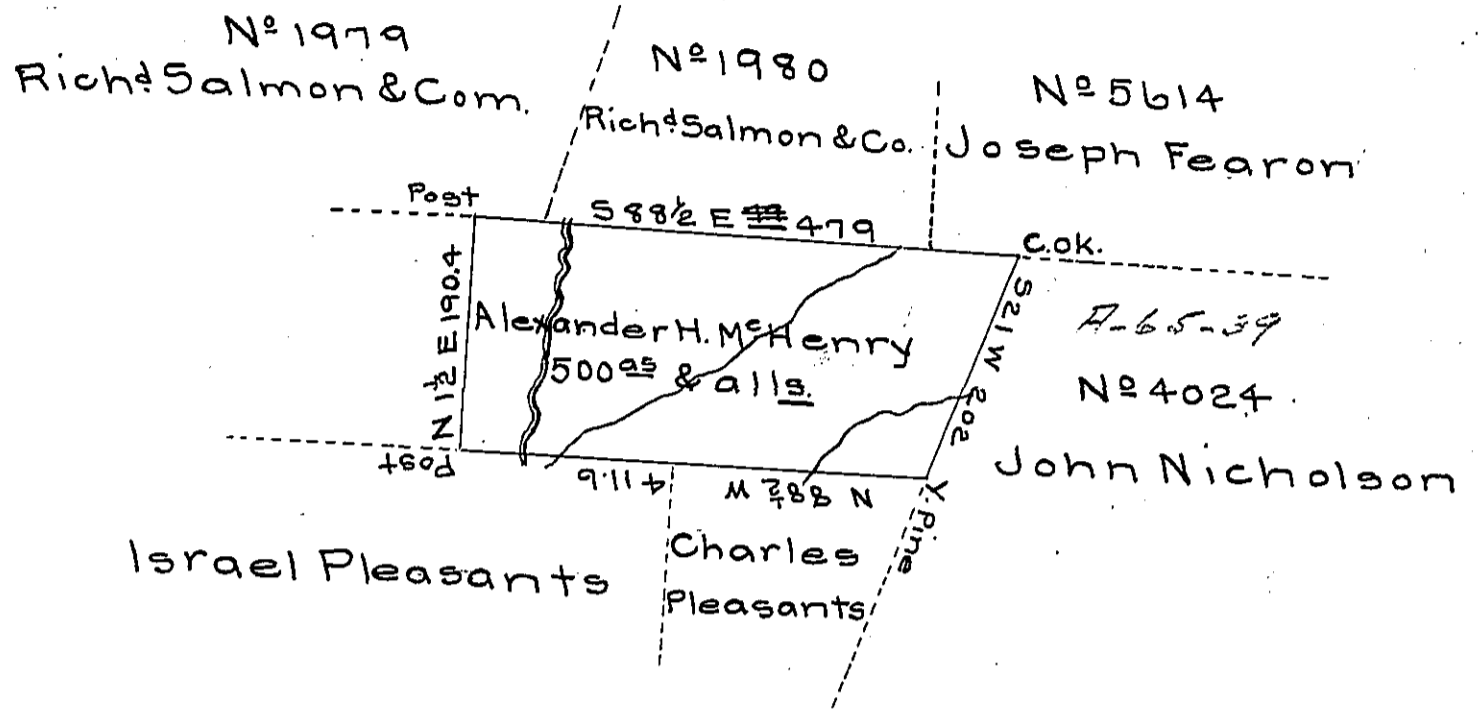 Nº 1979
Richd Salmon & Com.
Nº 1980
Richd Salmon & Co.
Nº 5614
Joseph Fearon
Post
S 88½ E 479
C.OK.
N 1½ E 190.4
Alexander H. McHenry
500 as & alls.
S21 W 202
A-65-39
Nº 4024.
John Nicholson
Post
N 88½ W 411.6
Y. Pine
Israel Pleasants
Charles
Pleasants